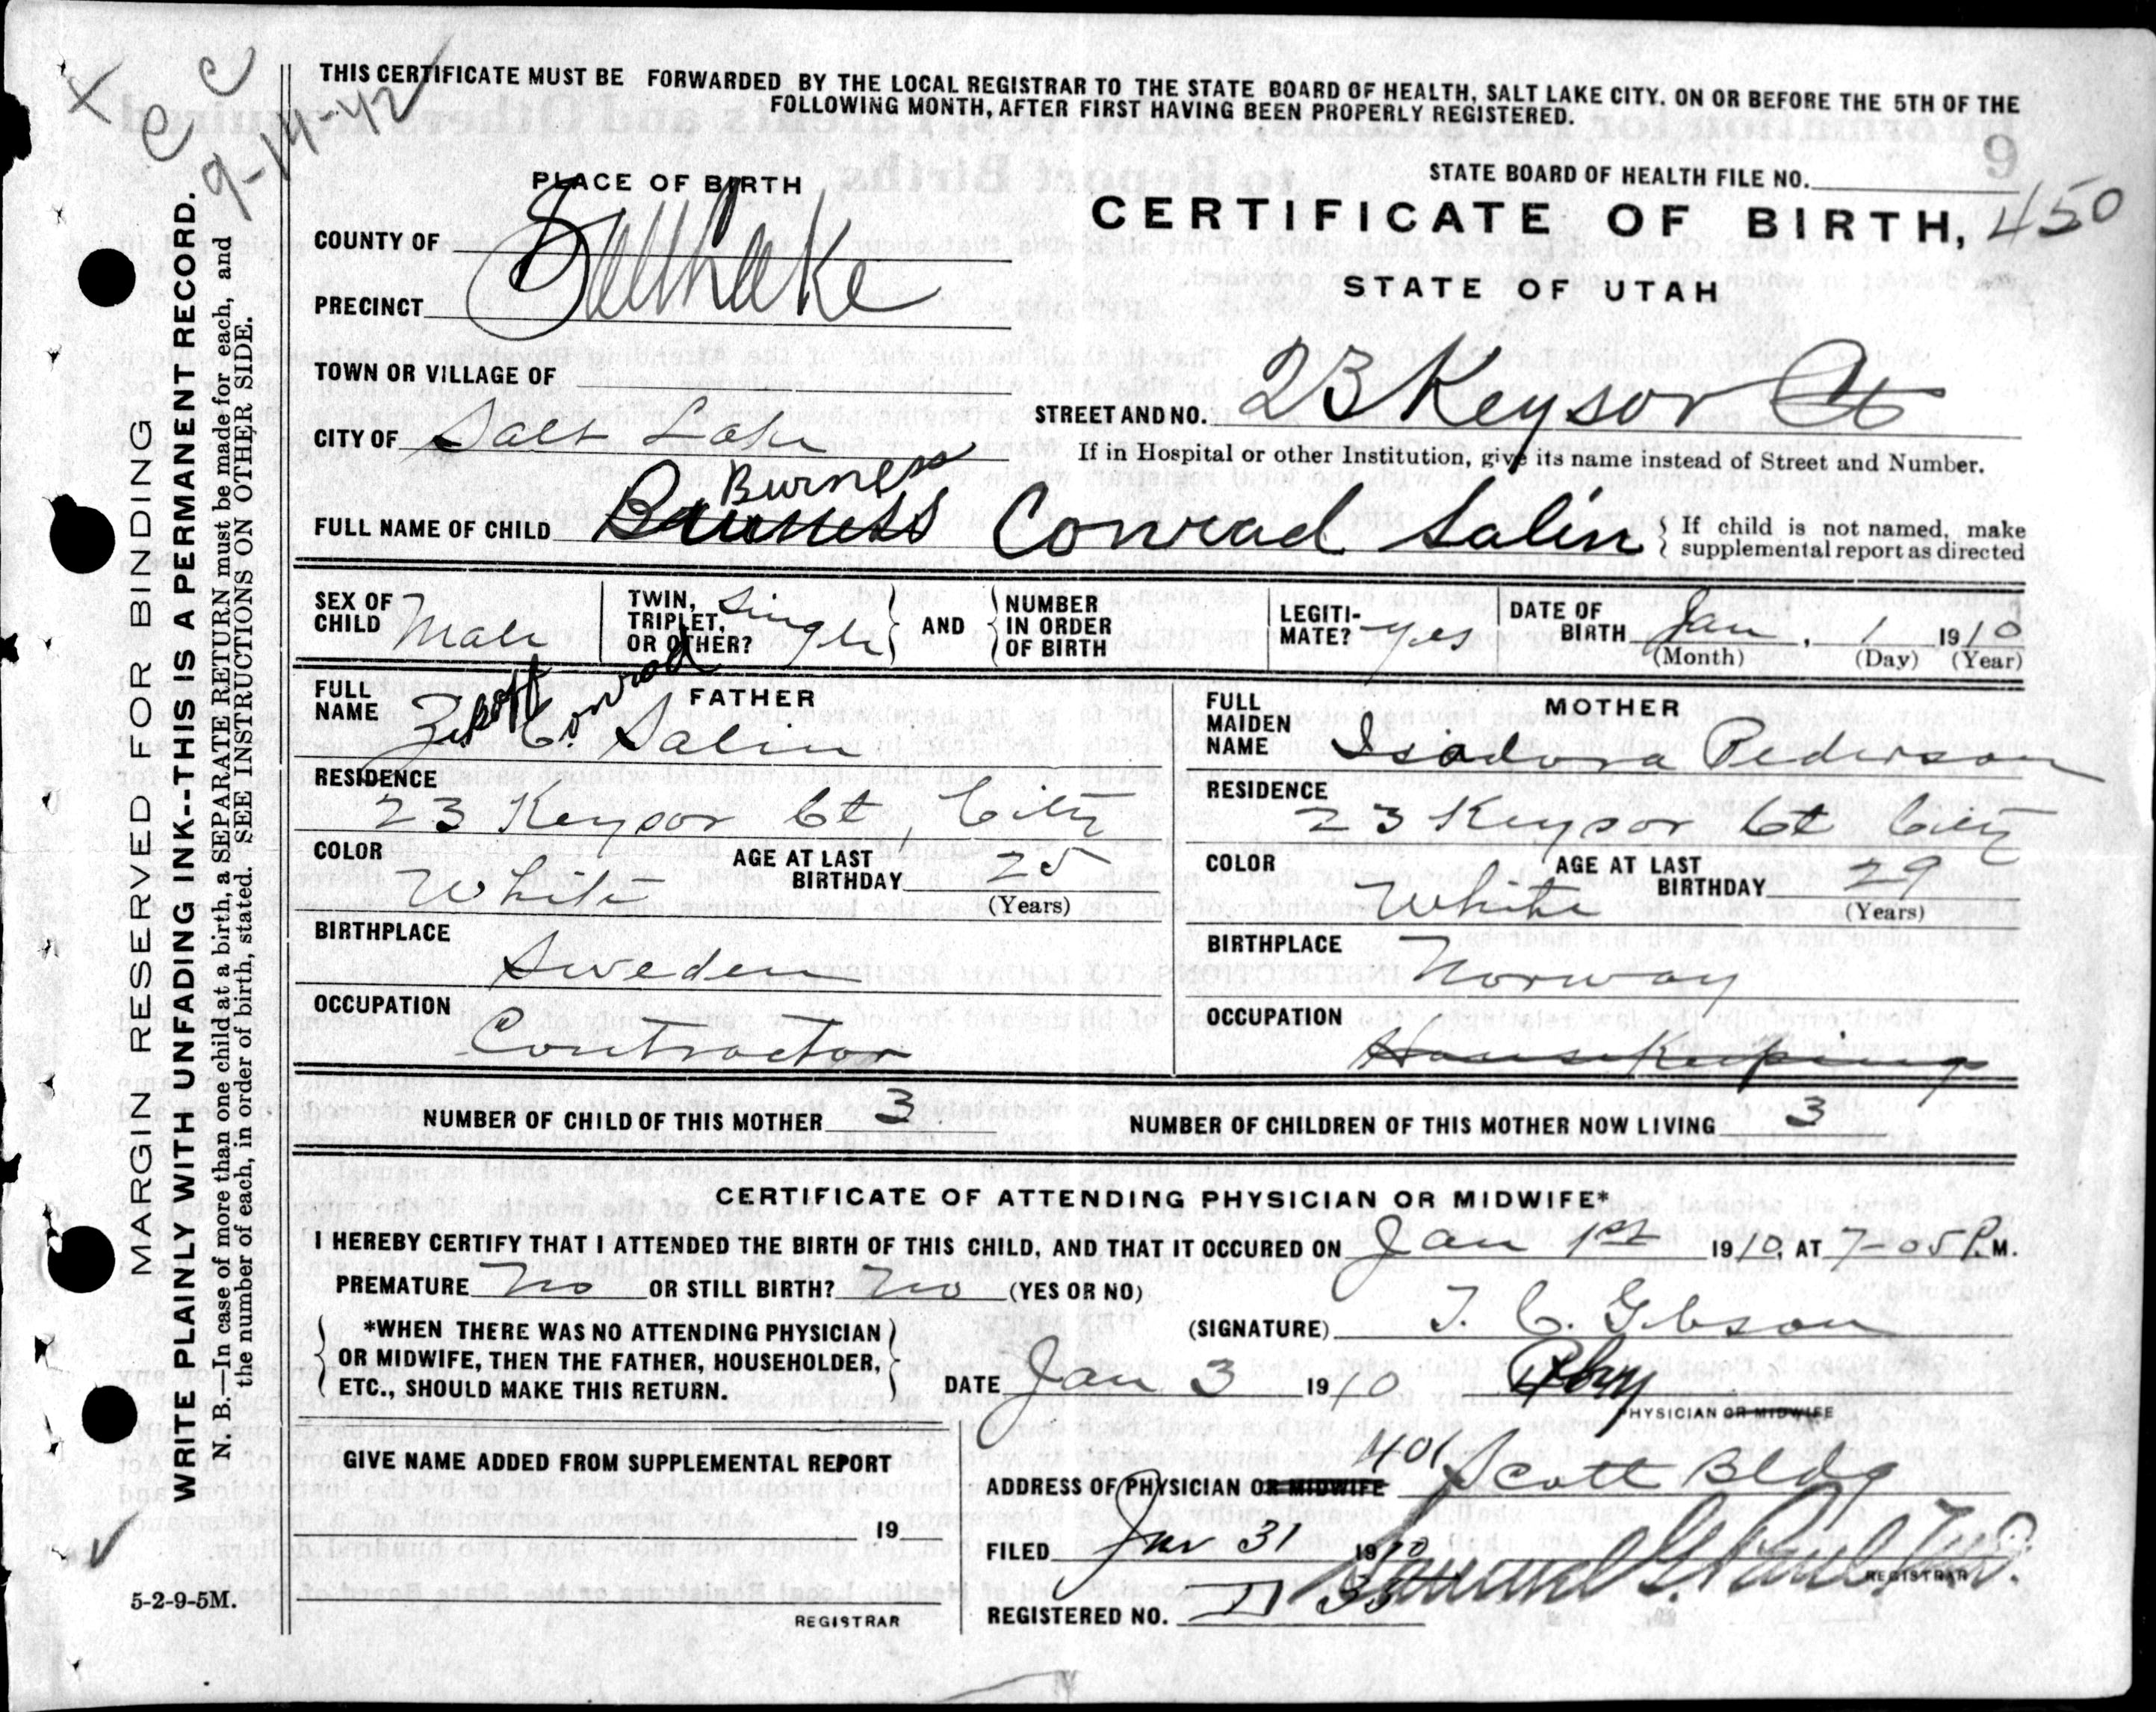 THIS CERTIFICATE MUST BE FORWARDED BY THE LOCAL REGISTRAR TO THE STATE BOARD OF HEALTH, SALT LAKE CITY. ON OR BEFORE THE 5TH OF THE
FOLLOWING MONTH, AFTER FIRST HAVING BEEN PROPERLY REGISTERED.
9-14-42
PLACE OF BIRTH
STATE BOARD OF HEALTH FILE NO.
CERTIFICATE OF BIRTH, 450
STATE OF UTAH
COUNTY OF Salt Lake
PRECINCT
TOWN OR VILLAGE OF
STREET AND NO. 23 Keysor Ct
CITY OF Salt Lake
If in Hospital or other Institution, give its name instead of Street and Number.
Burness
FULL NAME OF CHILD Conrad Salin { If child is not named, make
supplemental report as directed
SEX OF CHILD Male
TWIN, TRIPLET, OR OTHER? Single
AND
NUMBER IN ORDER OF BIRTH
LEGITI-MATE? yes
DATE OF BIRTH Jan, 1 1910
(Month) (Day) (Year)
FATHER
FULL NAME C. Conrad Salin
RESIDENCE
23 Keysor Ct, City
COLOR White
AGE AT LAST BIRTHDAY 25
(Years)
BIRTHPLACE
Sweden
OCCUPATION
Contractor
MOTHER
FULL MAIDEN NAME Isadora Pederson
RESIDENCE
23 Keysor Ct City
COLOR White
AGE AT LAST BIRTHDAY 29
(Years)
BIRTHPLACE
Norway
OCCUPATION
Housekeeping
NUMBER OF CHILD OF THIS MOTHER 3
NUMBER OF CHILDREN OF THIS MOTHER NOW LIVING 3
CERTIFICATE OF ATTENDING PHYSICIAN OR MIDWIFE*
I HEREBY CERTIFY THAT I ATTENDED THE BIRTH OF THIS CHILD, AND THAT IT OCCURED ON Jan 1st 1910, AT 7-05 P.M.
PREMATURE No OR STILL BIRTH? No (YES OR NO)
*WHEN THERE WAS NO ATTENDING PHYSICIAN
OR MIDWIFE, THEN THE FATHER, HOUSEHOLDER,
ETC., SHOULD MAKE THIS RETURN.
(SIGNATURE) T. C. Gibson
DATE Jan 3 1910 Phy
PHYSICIAN OR MIDWIFE
GIVE NAME ADDED FROM SUPPLEMENTAL REPORT
19
REGISTRAR
ADDRESS OF PHYSICIAN OR MIDWIFE 401 Scott Bldg
FILED Jan 31 1910
REGISTRAR
REGISTERED NO.
5-2-9-5M.
MARGIN RESERVED FOR BINDING
WRITE PLAINLY WITH UNFADING INK--THIS IS A PERMANENT RECORD.
N. B.—In case of more than one child at a birth, a SEPARATE RETURN must be made for each, and
the number of each, in order of birth, stated. SEE INSTRUCTIONS ON OTHER SIDE.